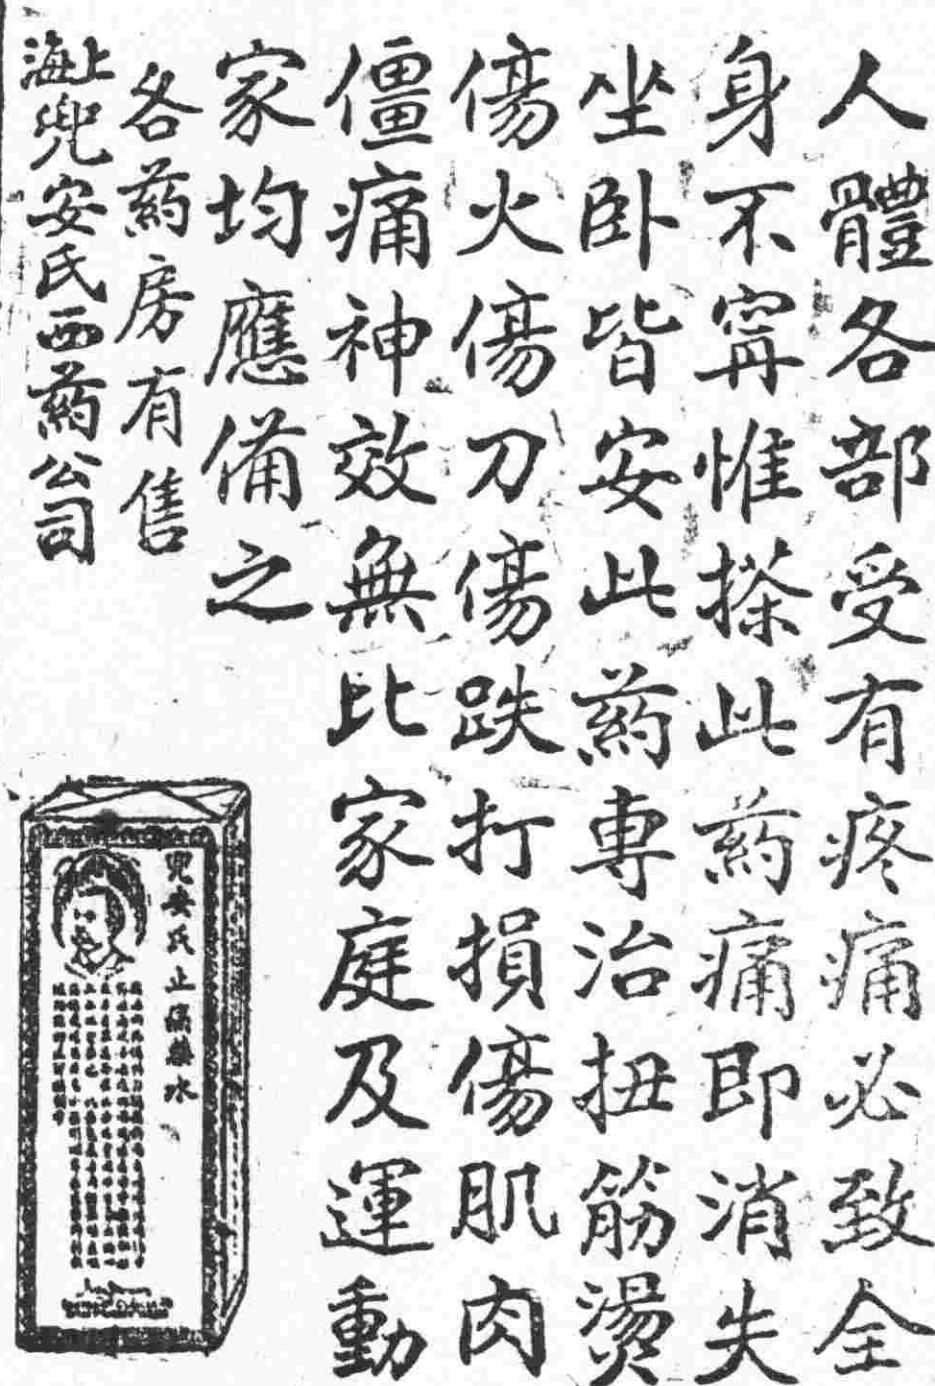 人體各部受有疼痛必致全
身不寧惟搽此葯痛即消失
坐卧皆安此葯專治扭筋燙
傷火傷刀傷跌打損傷肌肉
僵痛神效無比家庭及運動
家均應備之
各葯房有售
上海兜安氏西葯公司
兜安氏止痛藥水